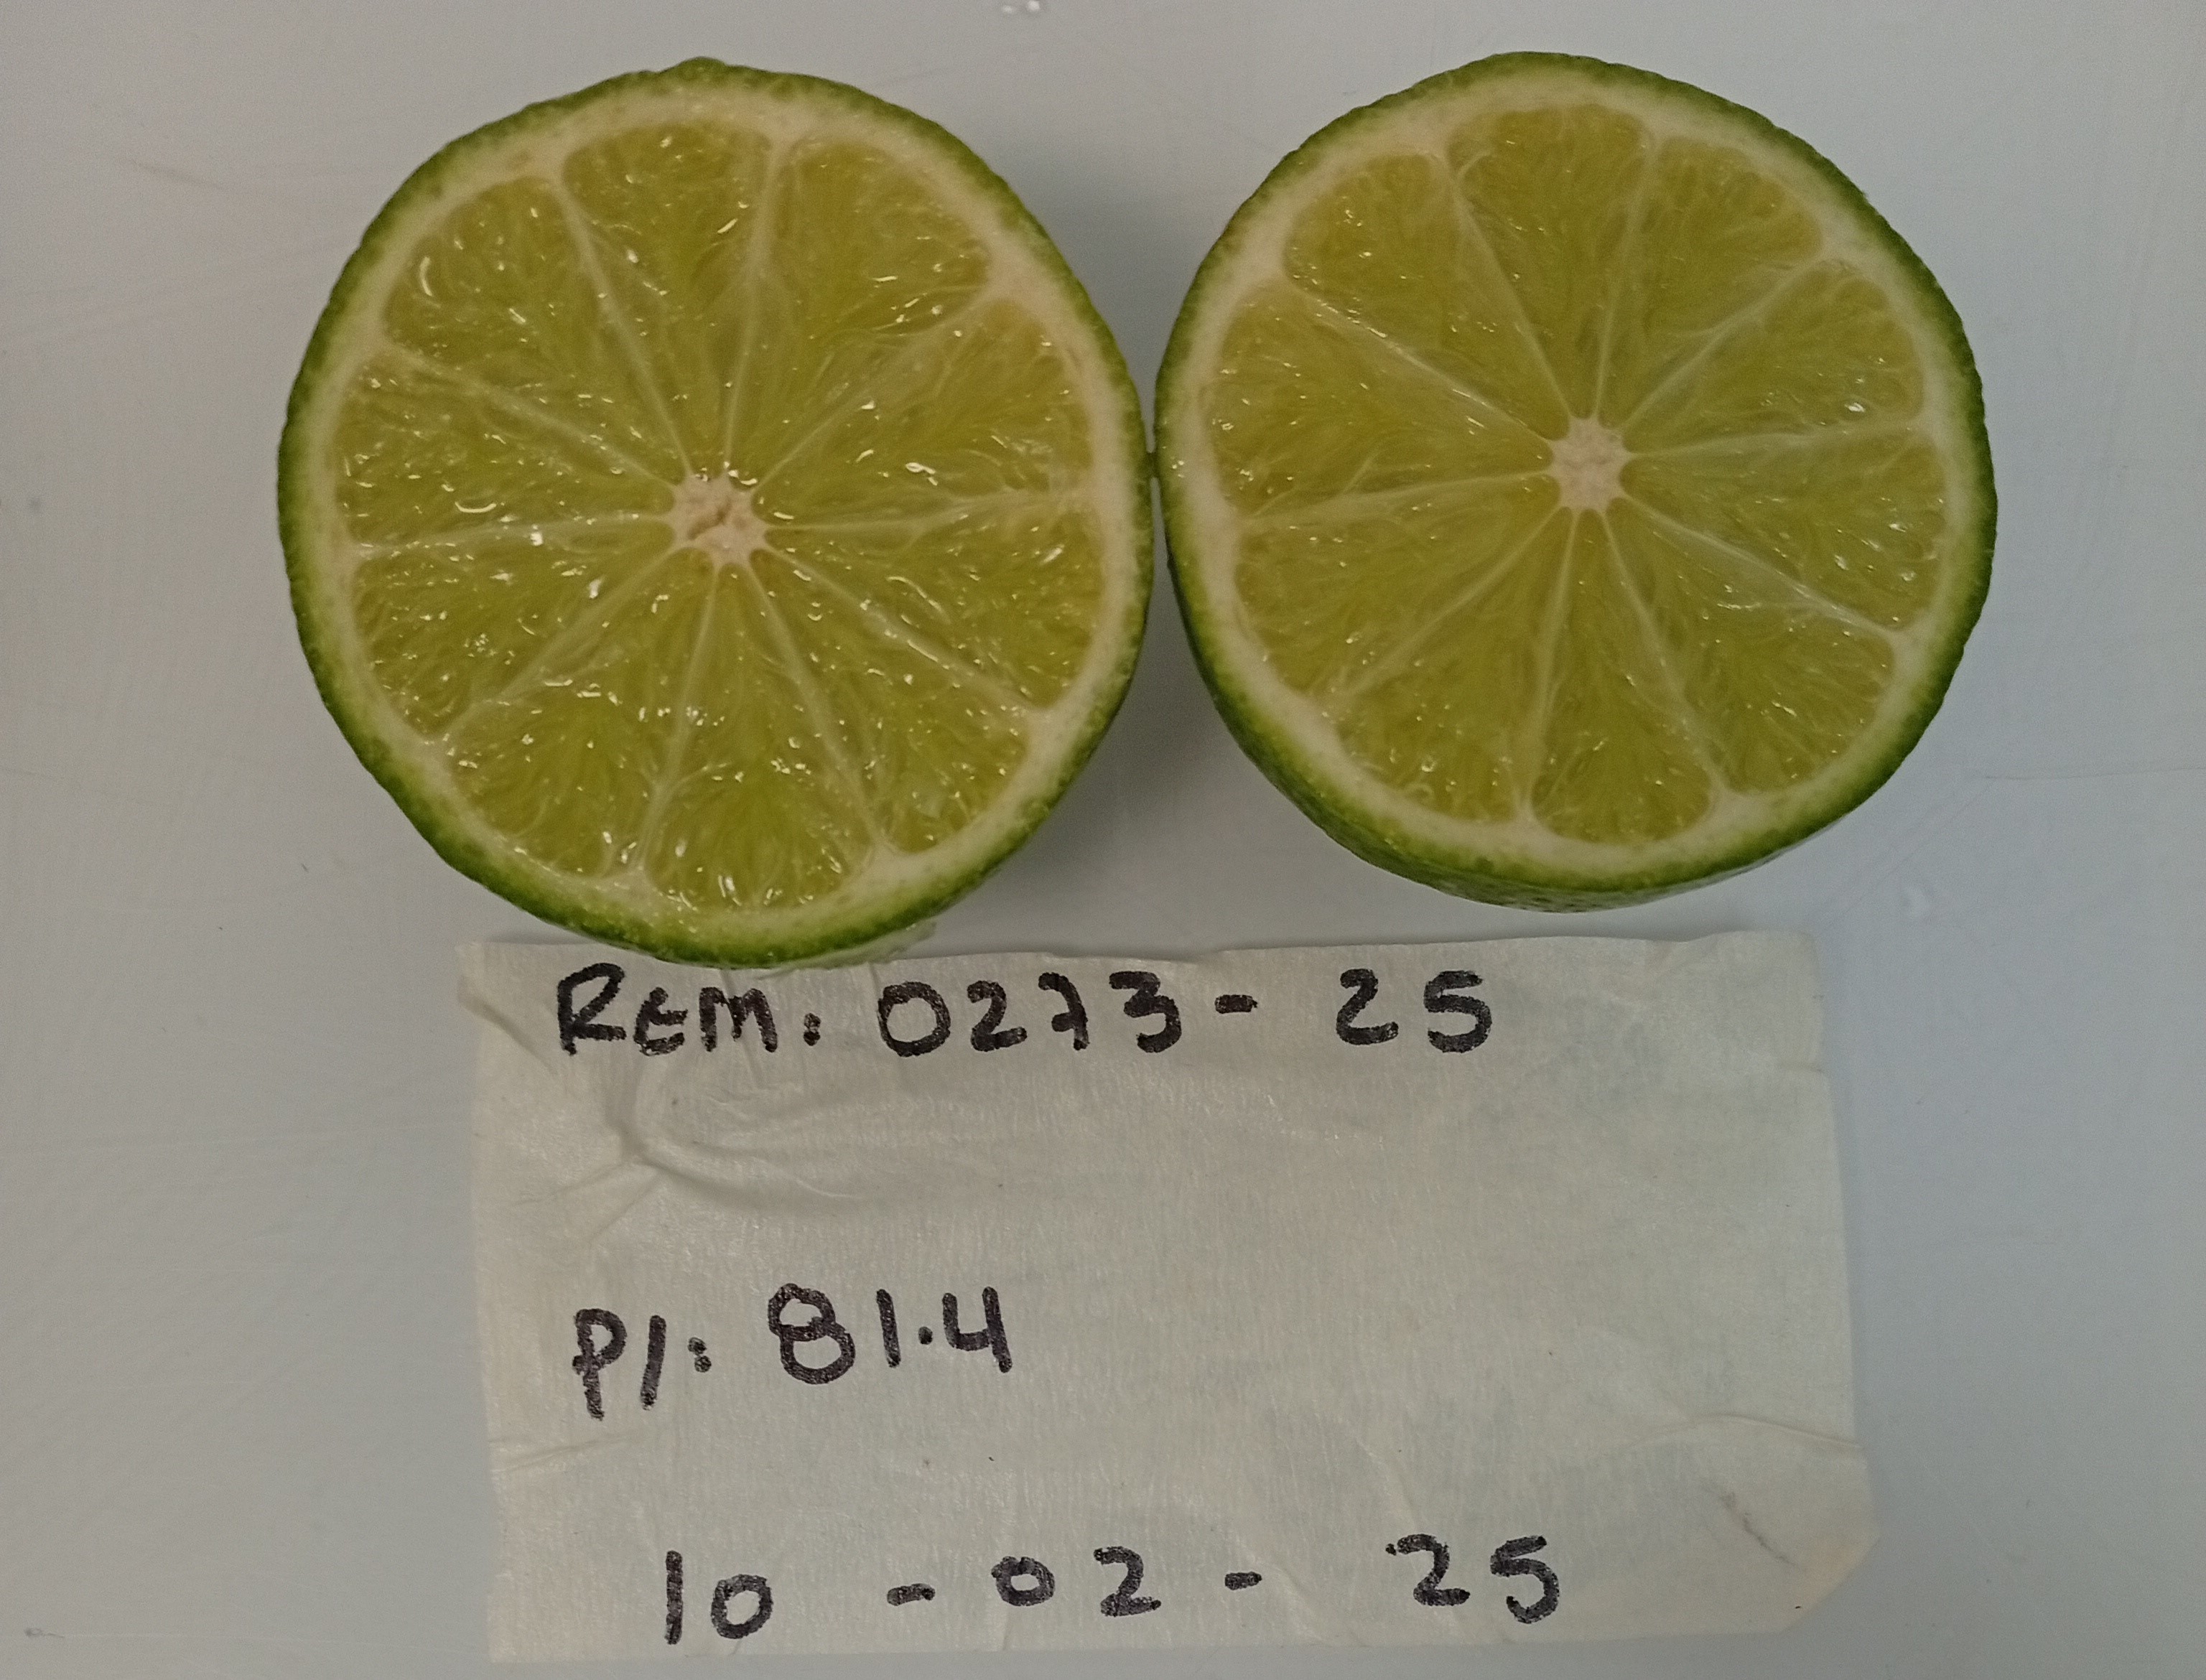 REM: 0273- 25
P1: 81.4
10 -02- 25